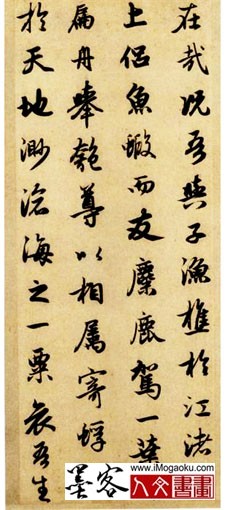 在哉況吾與子漁樵於江渚
上侶魚蝦而友麋鹿駕一葉
扁舟舉匏尊以相属寄蜉
於天地渺滄海之一粟哀吾生
墨客
www.iMogaoku.com
人文書畫